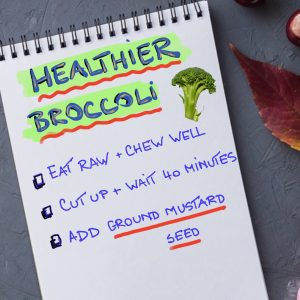 HEALTHIER
BROCCOLI
EAT RAW + CHEW WELL
CUT UP + WAIT 40 MINUTES
ADD GROUND MUSTARD
SEED